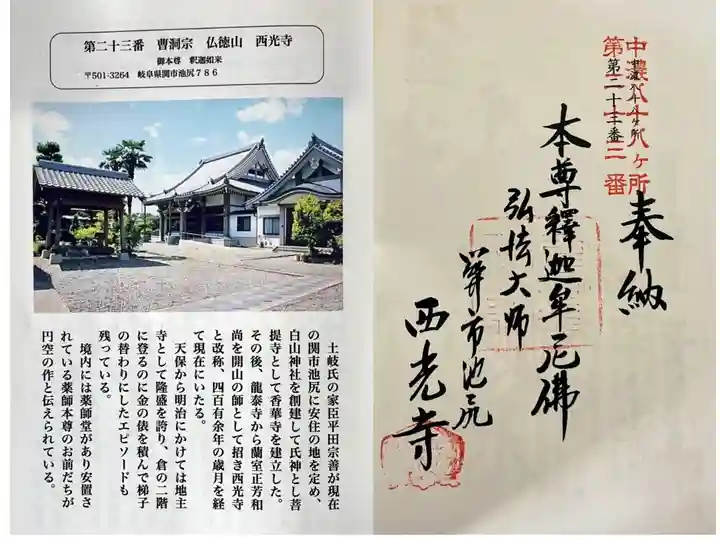 第二十三番　曹洞宗　仏徳山　西光寺
御本尊　釈迦如来
〒501-3264　岐阜県関市池尻７８６
土岐氏の家臣平田宗善が現在
の関市池尻に安住の地を定め、
白山神社を創建して氏神とし菩
提寺として香華寺を建立した。
その後、龍泰寺から蘭室正芳和
尚を開山の師として招き西光寺
と改称、四百有余年の歳月を経
て現在にいたる。
天保から明治にかけては地主
寺として隆盛を誇り、倉の二階
に登るのに金の俵を積んで梯子
の替わりにしたエピソードも
残っている。
境内には薬師堂があり安置さ
れている薬師本尊のお前だちが
円空の作と伝えられている。
中濃八十八ヶ所
第二十三番
中濃八十八ヶ所
第二十三番
奉納
本尊釋迦牟尼佛
弘法大师
関市池尻
西光寺